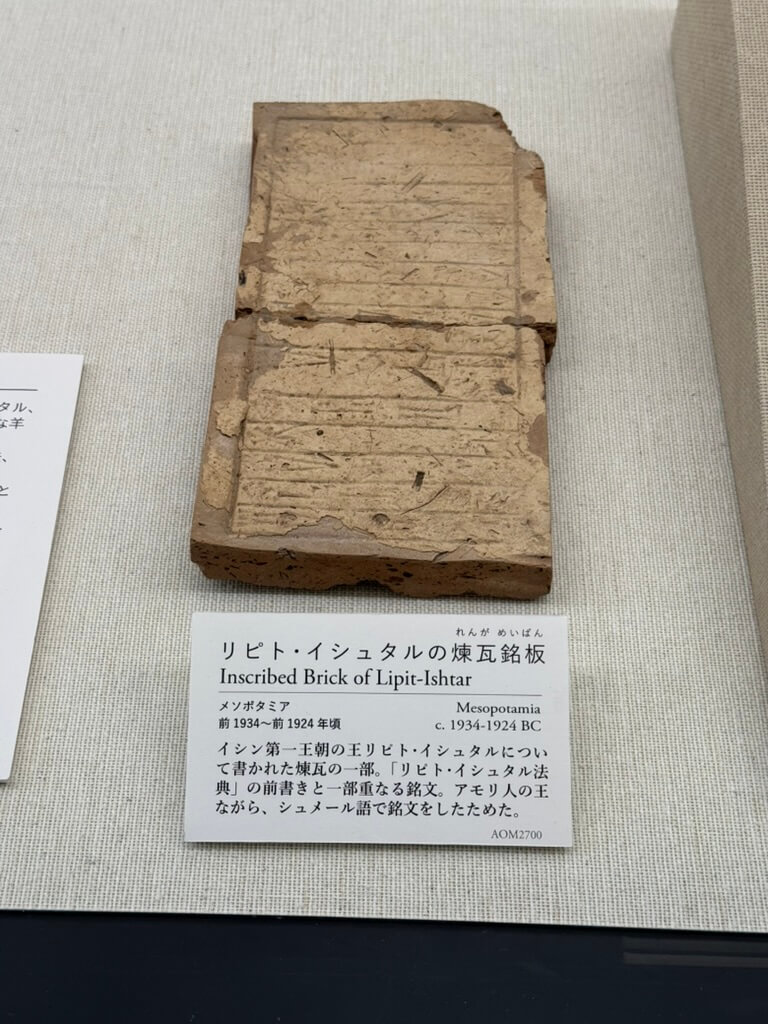 タル、
な羊
と
れんが めいばん
リピト・イシュタルの煉瓦銘板
Inscribed Brick of Lipit-Ishtar
メソポタミア Mesopotamia
前1934〜前1924年頃 c. 1934-1924 BC
イシン第一王朝の王リピト・イシュタルについ
て書かれた煉瓦の一部。「リピト・イシュタル法
典」の前書きと一部重なる銘文。アモリ人の王
ながら、シュメール語で銘文をしたためた。
AOM2700